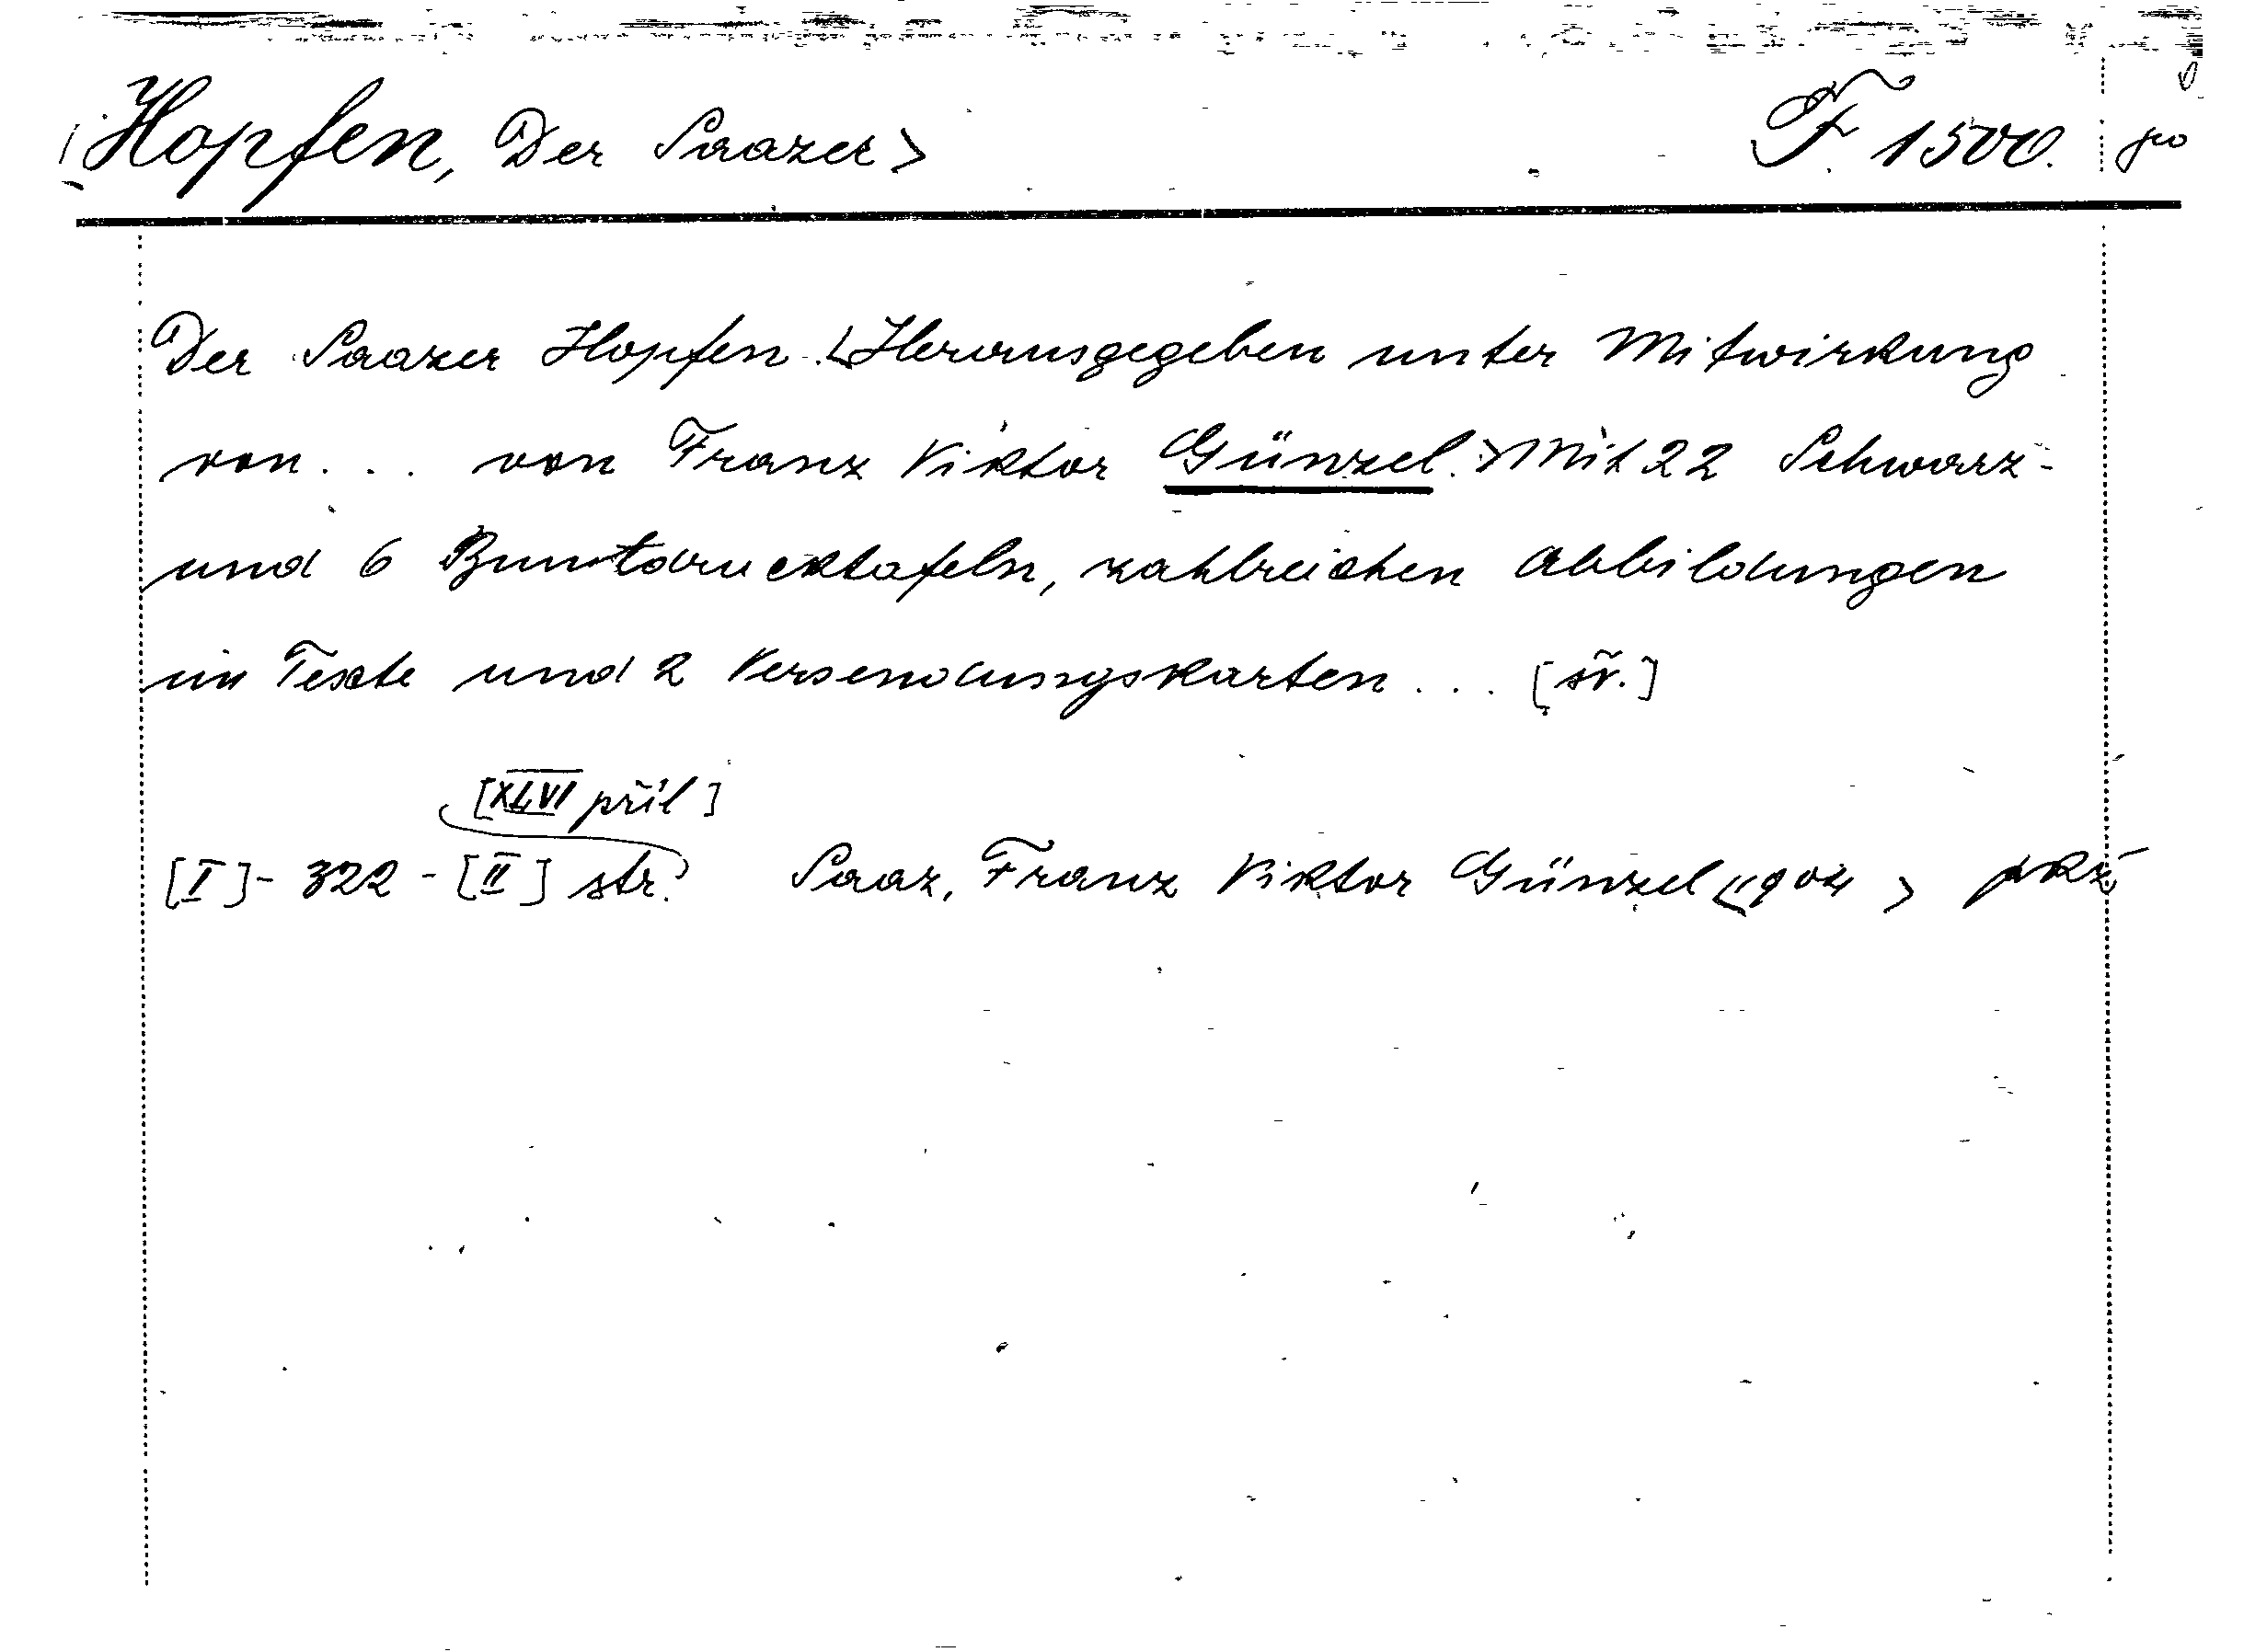 Hopfen, Der Saazer> F 1500.
Der Saazer Hopfen. <Herausgegeben unter Mitwirkung
von... von Franz Viktor Günzel.> Mit 22 Schwarz-
und 6 Buntdrucktafeln, zahlreichen Abbildungen
im Texte und 2 Versendungskarten... [sv.]
[XLVI příl]
[I]- 322 -[II] str. Saaz, Franz Viktor Günzel <1904>